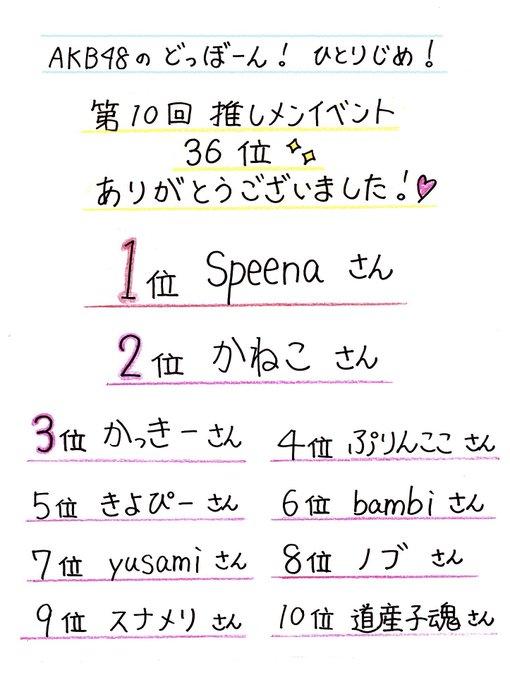 AKB48の どっぼーん! ひとりじめ!
第10回 推しメンイベント
36 位
ありがとうございました!
1位 Speena さん
2位 かねこ さん
3位 かっきー さん
4位 ぷりんここ さん
5位 きよぴー さん
6位 bambi さん
7位 yusami さん
8位 ノブ さん
9位 スナメリ さん
10位 道産子魂 さん